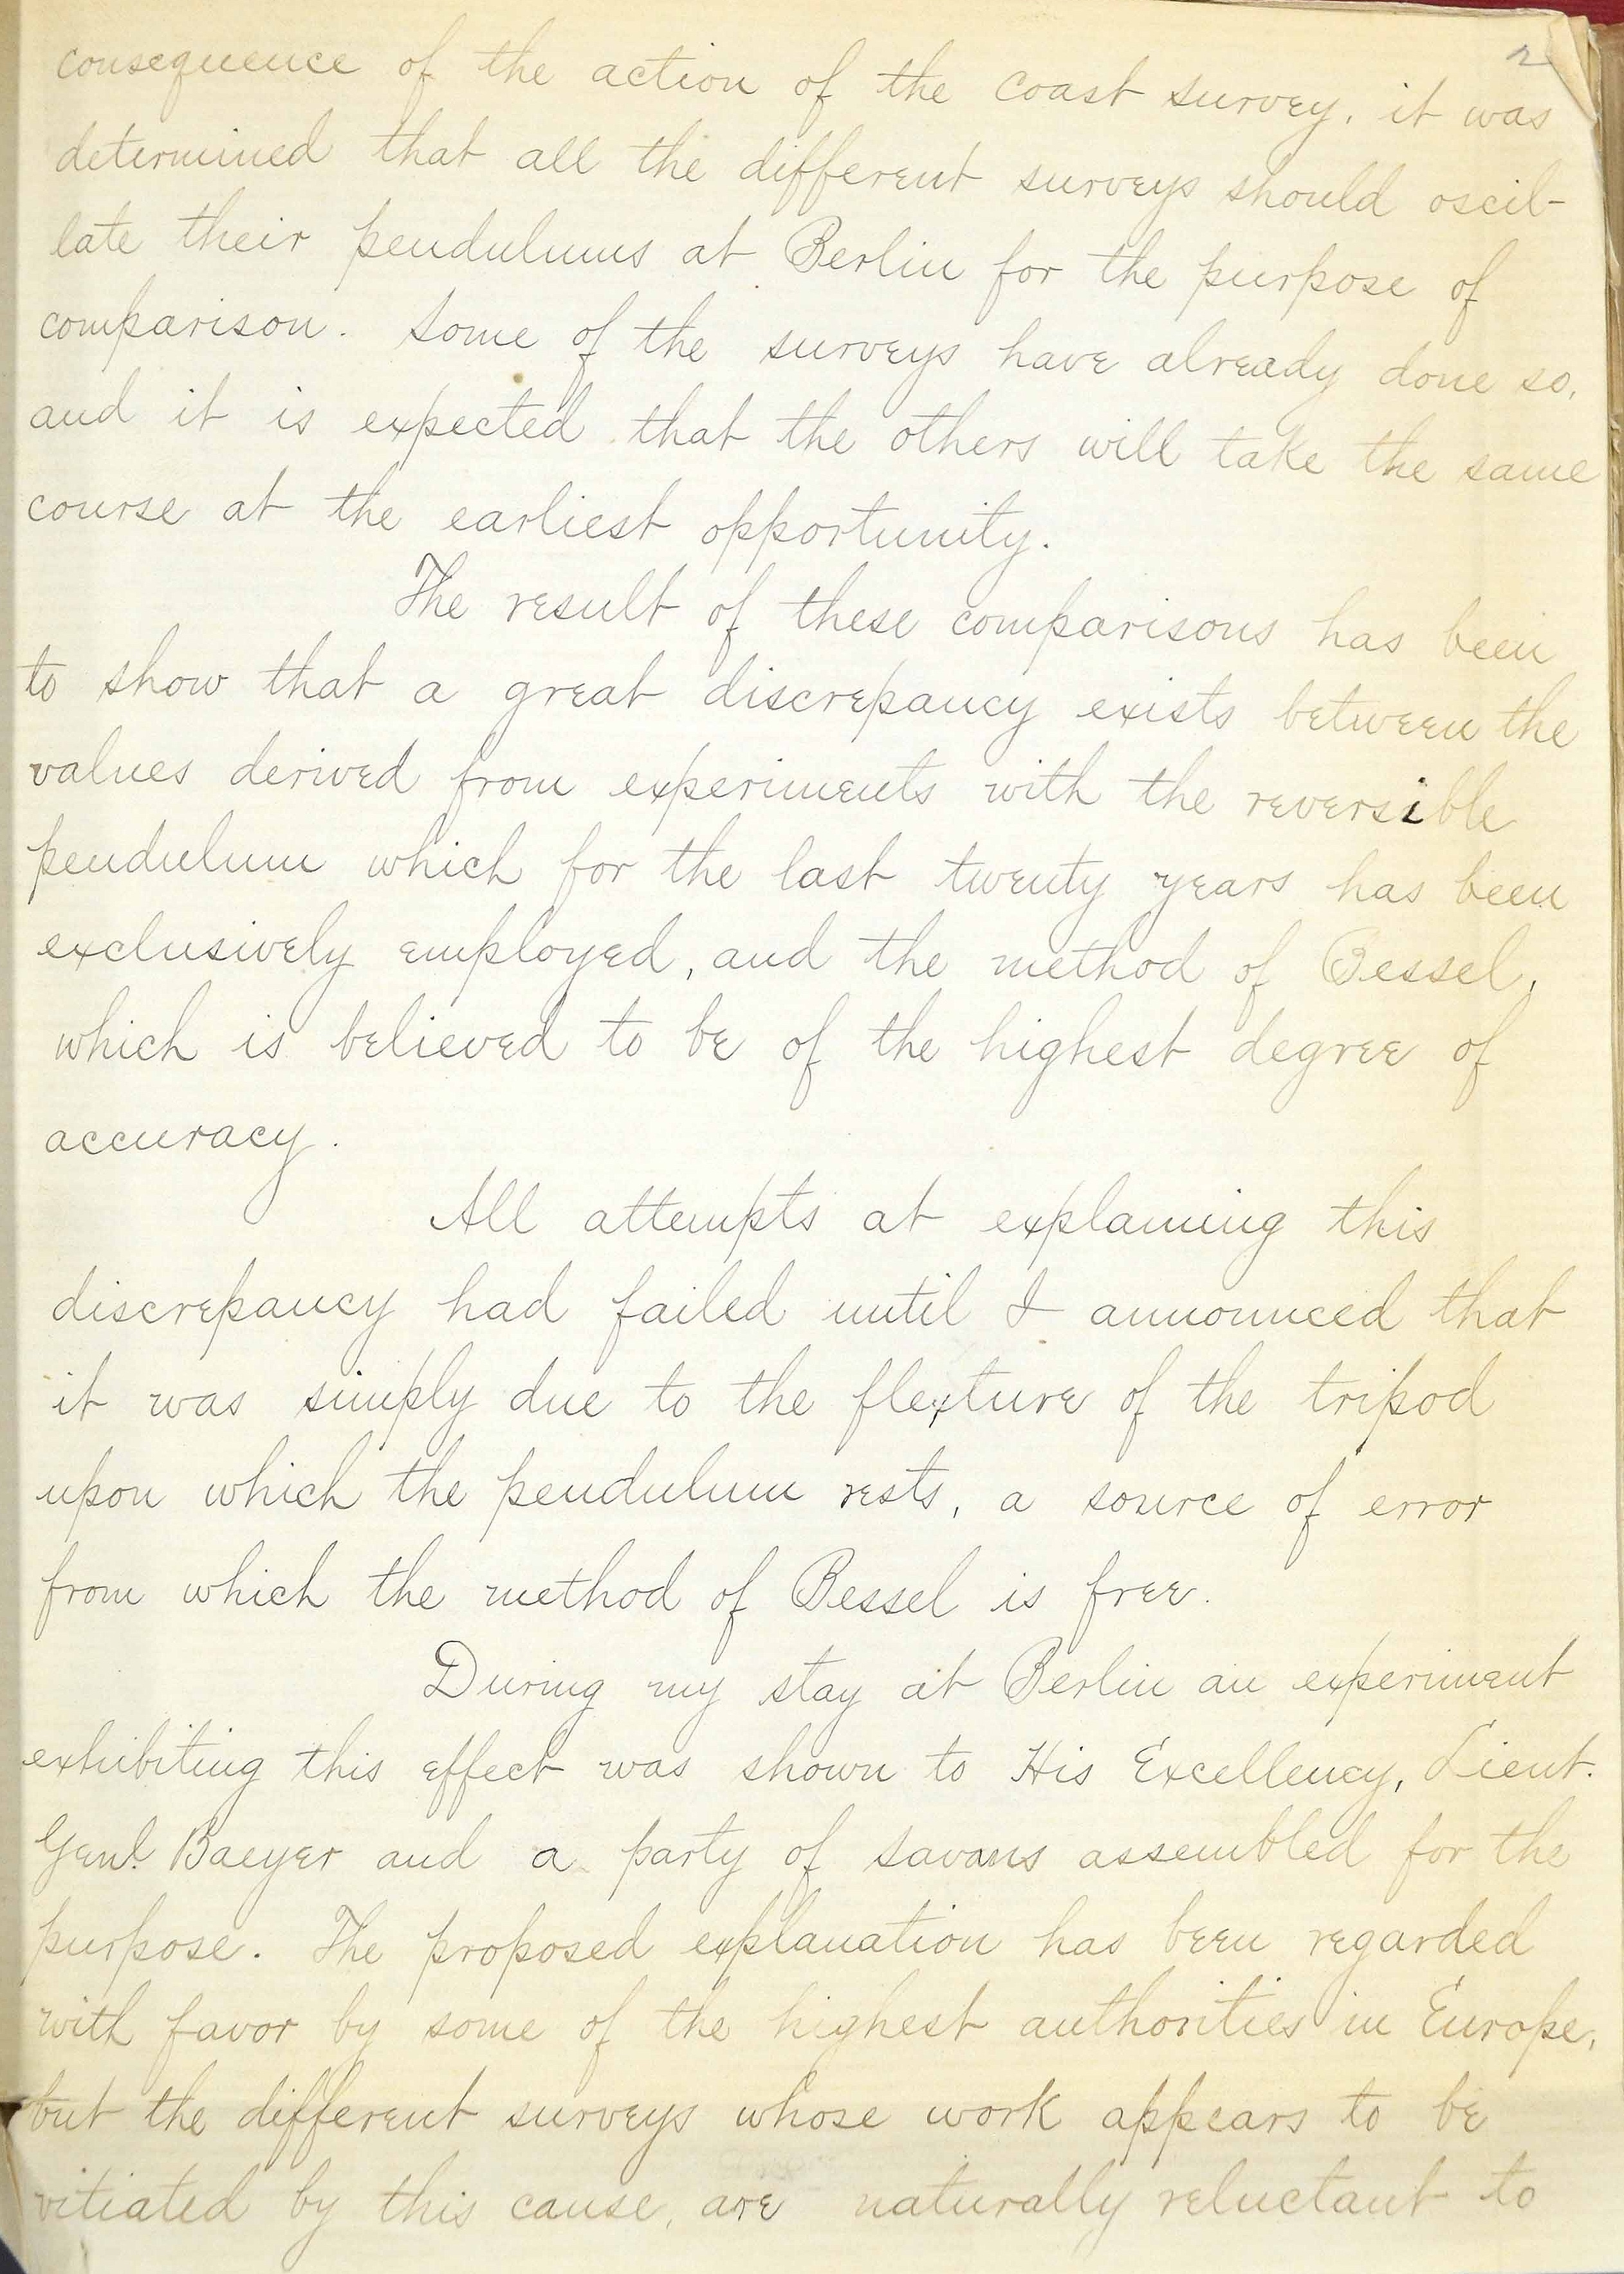 2
consequence of the action of the Coast Survey, it was
determined that all the different surveys should oscil-
late their pendulums at Berlin for the purpose of
comparison. Some of the surveys have already done so,
and it is expected that the others will take the same
course at the earliest opportunity.
The result of these comparisons has been
to show that a great discrepancy exists between the
values derived from experiments with the reversible
pendulum which for the last twenty years has been
exclusively employed, and the method of Bessel,
which is believed to be of the highest degree of
accuracy.
All attempts at explaining this
discrepancy had failed until I announced that
it was simply due to the flexture of the tripod
upon which the pendulum rests, a source of error
from which the method of Bessel is free.
During my stay at Berlin an experiment
exhibiting this effect was shown to His Excellency, Lieut.
Genl. Baeyer and a party of savans assembled for the
purpose. The proposed explanation has been regarded
with favor by some of the highest authorities in Europe,
but the different surveys whose work appears to be
vitiated by this cause, are naturally reluctant to